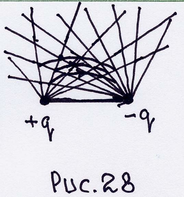 +q -q
Рис.28